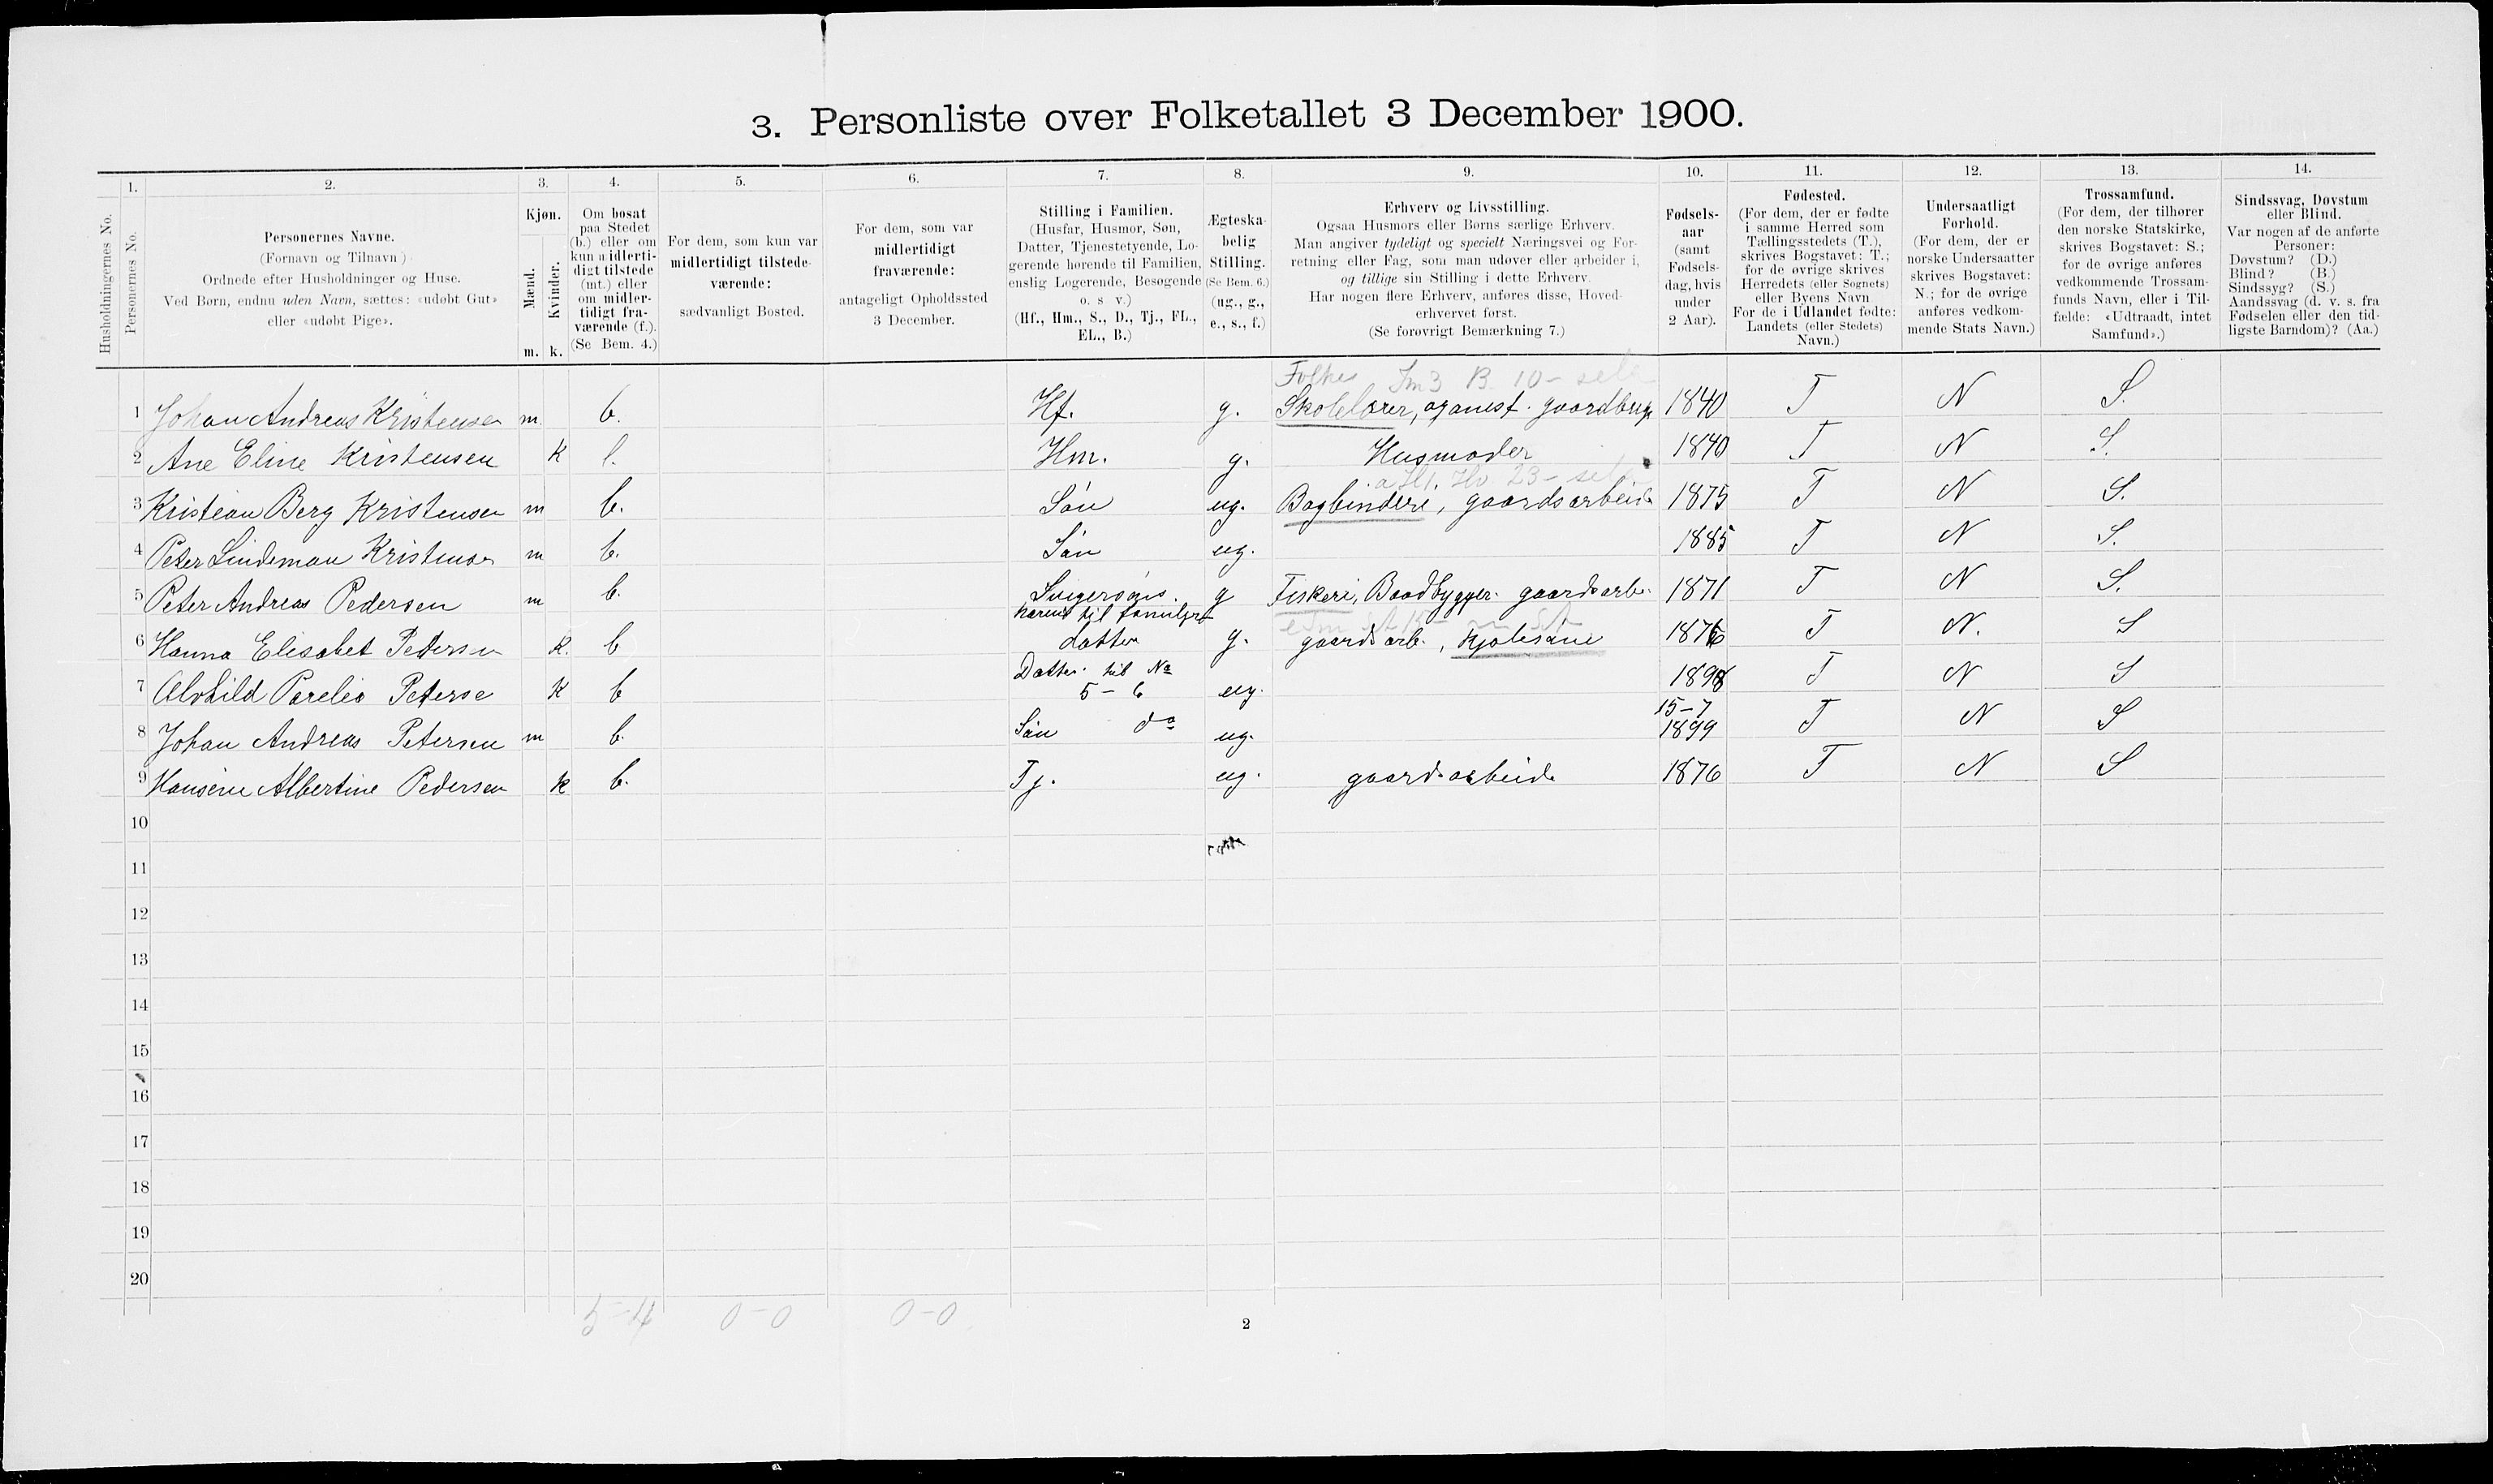 3. Personliste over Folketallet 3 December 1900.
1. 2. 3. 4. 5. 6. 7. 8. 9. 10. 11. 12. 13. 14.
Husholdningernes No.
Personernes No.
Personernes Navne.
(Fornavn og Tilnavn.)
Ordnede efter Husholdninger og Huse.
Ved Børn, endnu uden Navn, sættes: «udøbt Gut»
eller «udøbt Pige».
Kjøn.
Mænd.
Kvinder.
m. k.
Om bosat
paa Stedet
(b.) eller om
kun midlerti-
digt tilstede
(mt.) eller
om midler-
tidigt fra-
værende (f.).
(Se Bem. 4.)
For dem, som kun var
midlertidigt tilstede-
værende:
sædvanligt Bosted.
For dem, som var
midlertidigt
fraværende:
antageligt Opholdssted
3 December.
Stilling i Familien.
(Husfar, Husmor, Søn,
Datter, Tjenestetyende, Lo-
gerende hørende til Familien,
enslig Logerende, Besøgende
o. s. v.)
(Hf., Hm., S., D., Tj., FL.,
EL., B.)
Ægteska-
belig
Stilling.
(Se Bem. 6.)
(ug., g.,
e., s., f.)
Erhverv og Livsstilling.
Ogsaa Husmors eller Børns særlige Erhverv.
Man angiver tydeligt og specielt Næringsvei og For-
retning eller Fag, som man udøver eller arbeider i,
og tillige sin Stilling i dette Erhverv.
Har nogen flere Erhverv, anføres disse, Hoved-
erhvervet først.
(Se forøvrigt Bemærkning 7.)
Fødsels-
aar
(samt
Fødsels-
dag, hvis
under
2 Aar).
Fødested.
(For dem, der er fødte
i samme Herred som
Tællingsstedets (T.),
skrives Bogstavet: T.;
for de øvrige skrives
Herredets (eller Sognets)
eller Byens Navn
For de i Udlandet fødte:
Landets (eller Stedets)
Navn.)
Undersaatligt
Forhold.
(For dem, der er
norske Undersaatter
skrives Bogstavet:
N.; for de øvrige
anføres vedkom-
mende Stats Navn.)
Trossamfund.
(For dem, der tilhører
den norske Statskirke,
skrives Bogstavet: S.;
for de øvrige anføres
vedkommende Trossam-
funds Navn, eller i Til-
fælde: «Udtraadt, intet
Samfund».)
Sindssvag, Døvstum
eller Blind.
Var nogen af de anførte
Personer:
Døvstum? (D.)
Blind? (B.)
Sindssyg? (S.)
Aandssvag (d. v. s. fra
Fødselen eller den tid-
ligste Barndom)? (Aa.)
Folke B. 10 -
1 Johan Andreas Kristensen m b. Hf. g. Skolelærer, organist. gaardbrug 1840 T N S.
2 Ane Eline Kristensen K b. Hm. g. Husmoder 1840 T N S.
23 -
3 Kristian Berg Kristensen m b. Søn ug. Bogbinderi, gaardsarbeide 1875 T N S.
4 Peter Lindeman Kristensen m b. Søn ug. 1885 T N S.
5 Peter Andreas Pedersen m b. Svigersøn g Fiskeri, Baadbygger. gaardsarb. 1871 T N S.
6 Hanna Elisabet Petersen K. b datter g. gaardsarb., Kjolesøm 1876 T N. S
Datter til No
7 Alvhild Petersen K b 5 - 6 ug. 1898 T N S
15-7
8 Johan Andreas Petersen m b. Søn do ug. 1899 T N S
9 Hansine Albertine Pedersen k b. Tj. ug. gaardsarbeide 1876 T N S
10
11
12
13
14
15
16
17
18
19
20
5-4 0-0 0-0
2